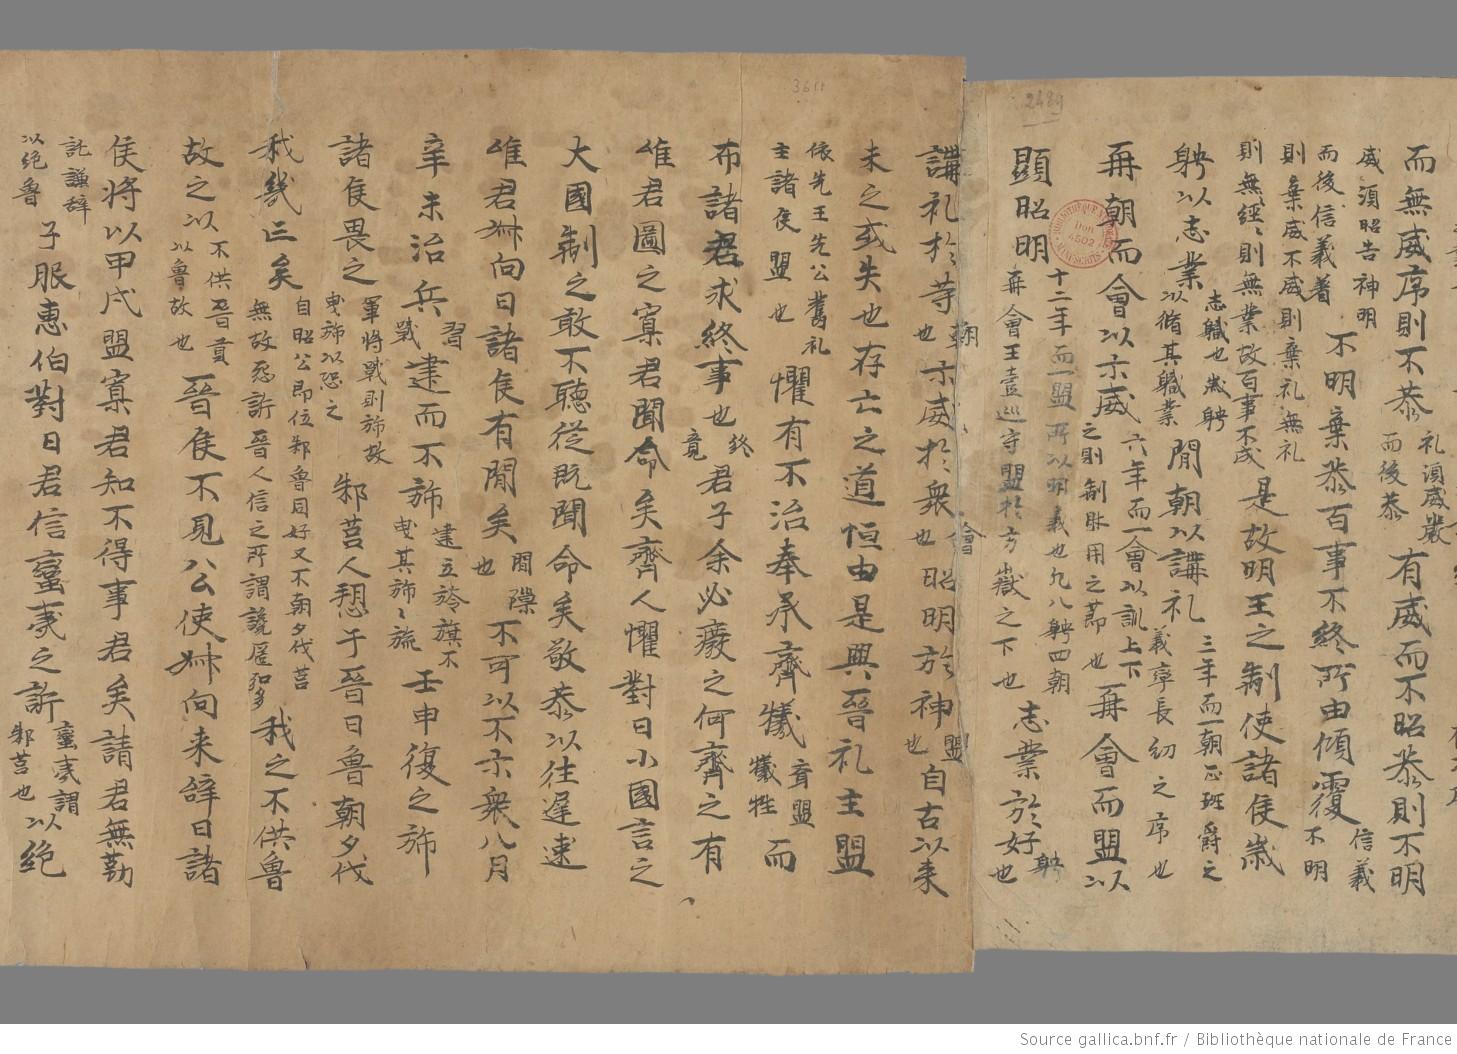 而無威序則不恭礼須威嚴而後恭有威而不昭恭則不明
威須昭告神明而後信義著不明棄恭百事不終所由傾覆信義不明
則棄威不威則棄礼無礼則無經〻則無業故百事不成是故明王之制使諸侯歲
聘以志業志軄也歲聘以脩其軄業閒朝以講礼三年而一朝正班爵之義率長幼之序也
再朝而會以示威六年而一會以訓上下之則制財用之莭也再會而盟以
顯昭明十二年而一盟所以明義也凡八聘四朝再會王壹巡守盟於方嶽之下也志業於好聘也
講礼於等朝也示威於衆會也昭明於神盟也自古以来
未之或失也存亡之道恒由是興晉礼主盟
依先王先公舊礼主諸侯盟也懼有不治奉承齊犧齊盟犧牲而
布諸君求終事也終竟君子余必癈之何齊之有
唯君圖之寡君聞命矣齊人懼對曰小國言之
大國制之敢不聽從既聞命矣敬恭以往遅速
唯君叔向曰諸侯有閒矣閒隟也不可以不示衆八月
辛未治兵習戰建而不斾建立旍旗不曳其斾〻旒壬申復之斾
諸侯畏之軍將戰則斾故曳斾以恐之邾莒人愬于晉曰魯朝夕伐
我幾亡矣自昭公即位邾魯同好又不朝夕伐莒無故怨訴晉人信之所謂讒慝弘多我之不供魯
故之以不供晉貢以魯故也晉侯不見公使叔向来辝曰諸
侯将以甲戌盟寡君知不得事君矣請君無勤
託謙辝以絶魯子服惠伯對曰君信蠻夷之訴蠻夷謂邾莒也以絶
2489
3611
BIBLIOTHÈQUE
Don 4502
MANUSCRITS
Source gallica.bnf.fr / Bibliothèque nationale de France